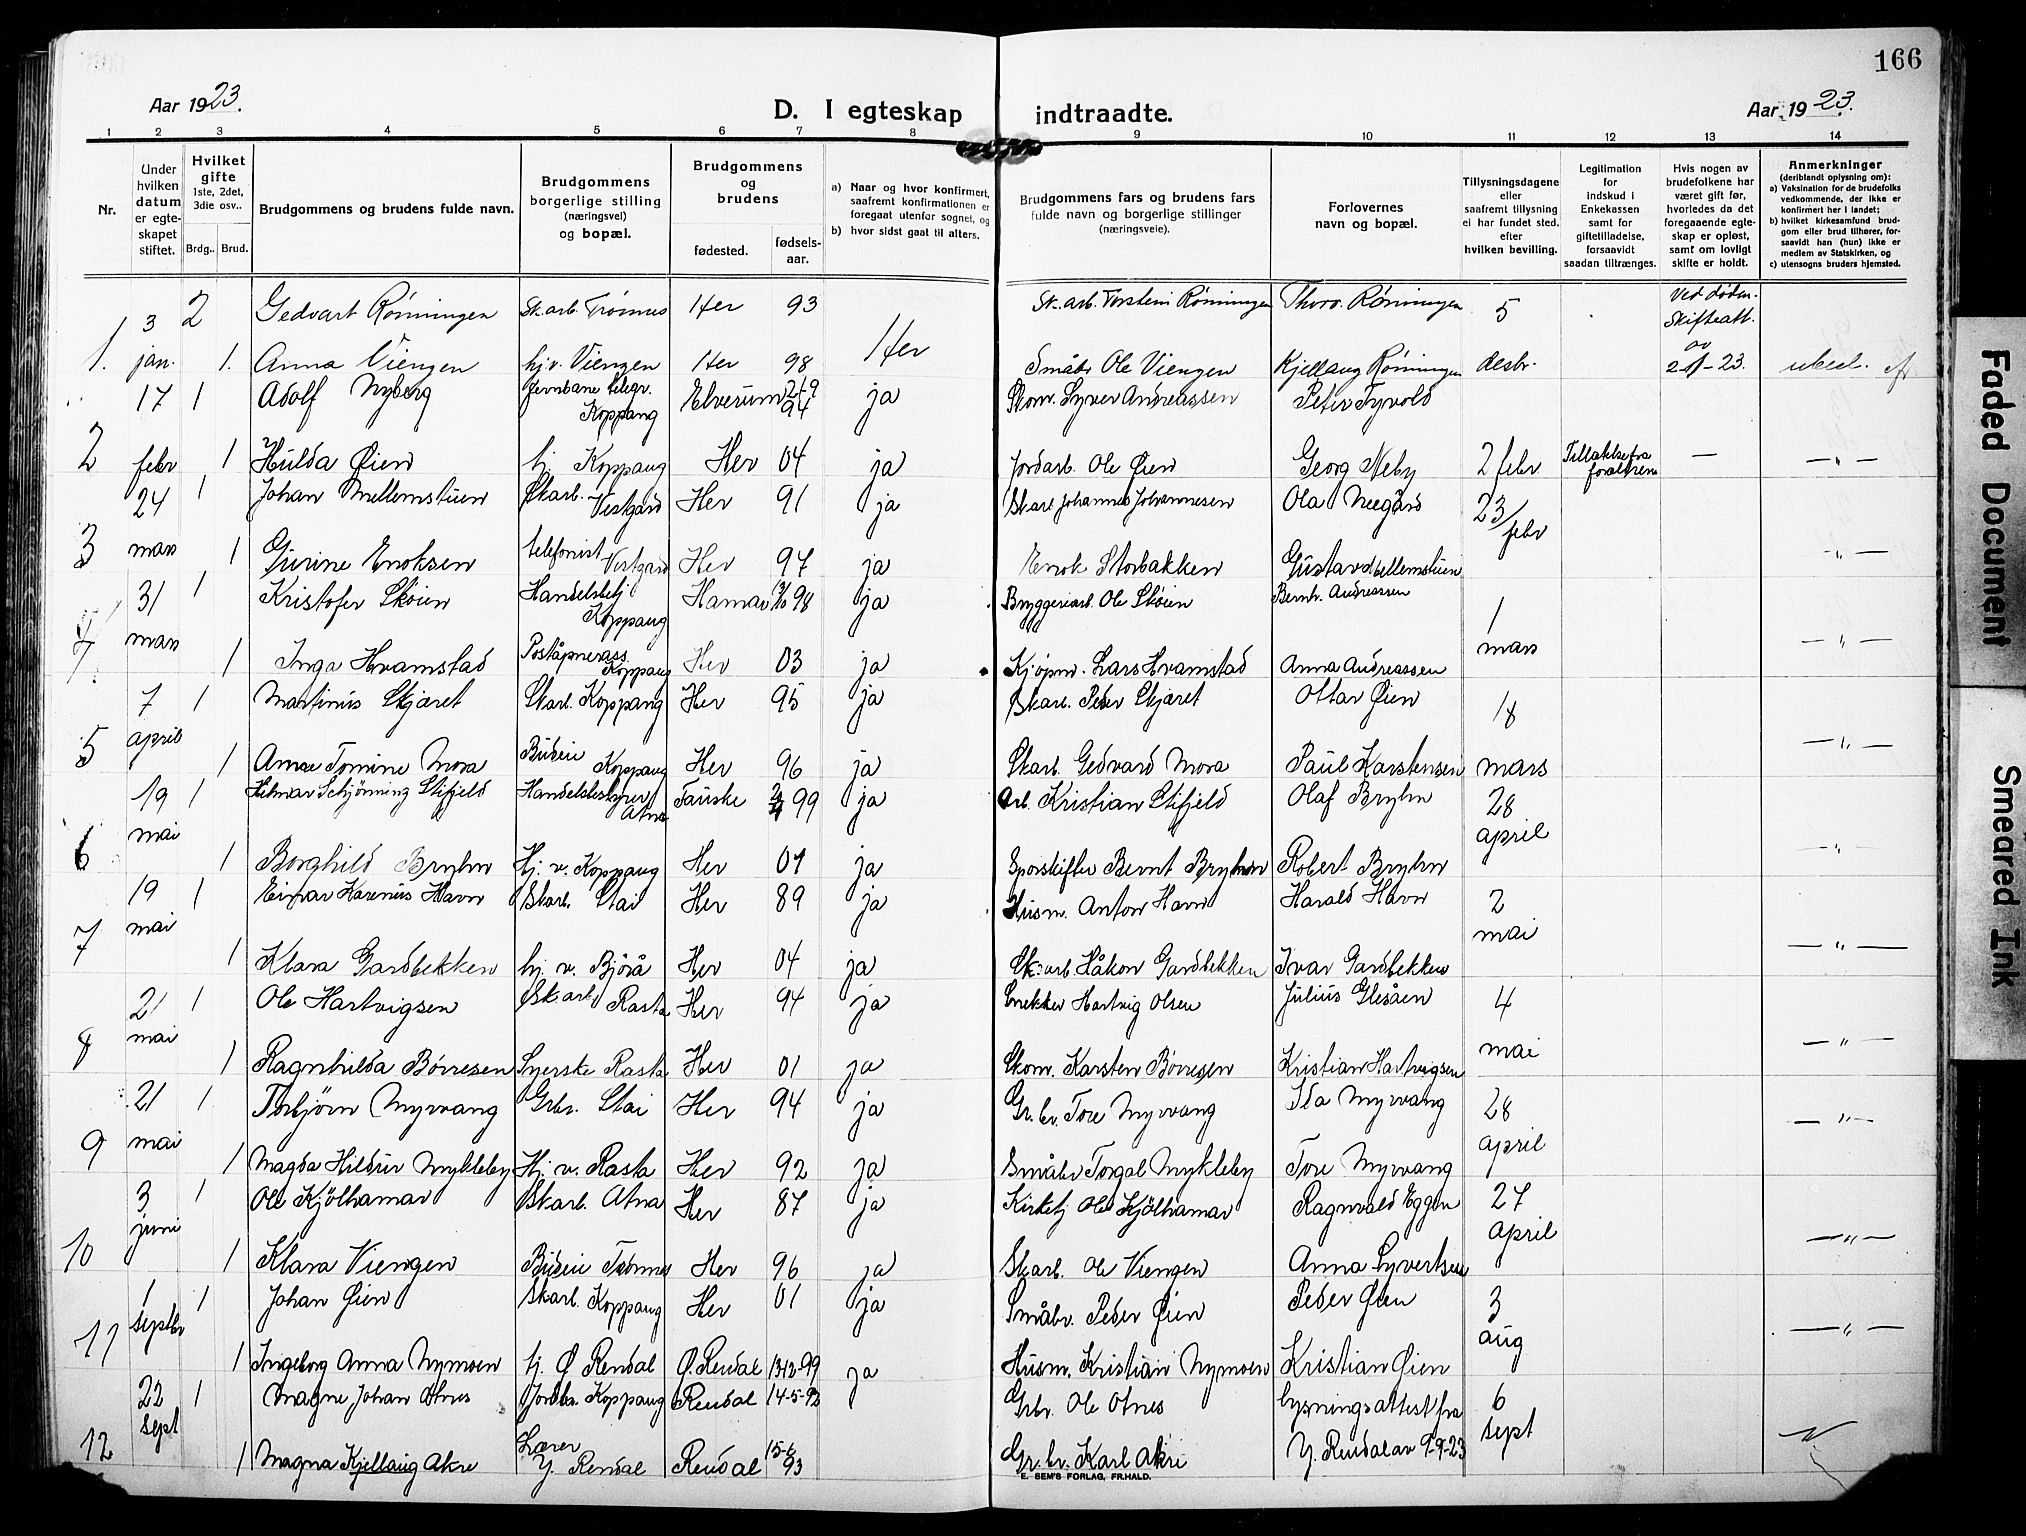 166
Aar 1923.
D. I egteskap indtraadte.
Aar 1923.
1 2 3 4 5 6 7 8 9 10 11 12 13 14
Nr.
Under hvilken datum er egteskapet stiftet.
Hvilket gifte 1ste, 2det, 3die osv..
Brdg.. Brud.
Brudgommens og brudens fulde navn.
Brudgommens borgerlige stilling (næringsvei) og bopæl.
Brudgommens og brudens
fødested. fødselsaar.
a) Naar og hvor konfirmert, saafremt konfirmationen er foregaat utenfor sognet, og
b) hvor sidst gaat til alters.
Brudgommens fars og brudens fars fulde navn og borgerlige stillinger (næringsveie).
Forlovernes navn og bopæl.
Tillysningsdagene eller saafremt tillysning ei har fundet sted, efter hvilken bevilling.
Legitimation for indskud i Enkekassen samt for giftetilladelse, forsaavidt saadan tiltrænges.
Hvis nogen av brudefolkene har været gift før, hvorledes da det foregaaende egteskap er opløst, samt om lovligt skifte er holdt.
Anmerkninger (deriblandt oplysning om):
a) Vaksination for de brudefolks vedkommende, der ikke er konfirmert her i landet;
b) hvilket kirkesamfund brudgom eller brud tilhører, forsaavidt han (hun) ikke er medlem av Statskirken, og
c) utensogns bruders hjemsted.
3 2 Gedvart Rønningen Sk.arb. Trønnes Her 93 Sk.arb. Torstein Rønningen Thorv. Rønningen 5 Ved døden. Skifteatt. av
1. jan. 1. Anna Viengen hj.v. Viengen Her 98 Her Småbr Ole Viengen Kjellaug Rønningen desbr. 2-1-23.
17 1 Adolf Nyberg Jernbane telegr. Koppang Elverum 94 ja Skom. Syver Andreassen Peter Tyvold
2 febr 1 Hulda Øien hj. Koppang Her 04 ja Jordarb. Ole Øien Georg Neby 2 febr Tillatelse fra forældrene — — " —
24 1 Johan Mellemstuen Skarb. Vestgård Her 91 ja Skarb Johannes Johannesen Ola Neegård 23/febr
3 mars 1 Gurine Enoksen telefonist Vestgård Her 97 ja Enok Storbakken Gustav Mellemstuen - " —
31 1 Kristofer Skøien Handelsbetj Koppang Hamar 98 ja Bryggeriarb. Ole Skøien Bernh. Andreassen 1
4 mars 1 Inga Hvamstad Poståpnerass Koppang Her 03 ja Kjøpm. Lars Hvamstad Anna Andreassen mars — " —
7 1 Martinus Skjæret Skarb. Koppang Her 95 ja Skarb. Peder Skjæret Ottar Øien 18
5 april 1 Anna Tomine Mora Budeie Koppang Her 96 ja Skarb. Gedvard Mora Paul Karstensen mars — " —
19 1 Hilmar Schjønning Stifjeld Handelsbestyrer Atna Fauske 99 ja Arb. Kristian Stifjeld Olaf Bryhn 28
6 mai 1 Borghild Bryhn Hj. v. Koppang Her 01 ja Sporskifter Bernt Bryhn Robert Bryhn april - " -
19 1 Einar Karenius Havn Skarb. Stai Her 89 ja Husm. Anton Havn Harald Havn 2
7 mai 1 Klara Gardbekken hj. v. Bjørå Her 04 ja Sk.arb. Håkon Gardbekken Ivar Gardbekken mai — " —
21 1 Ole Hartvigsen Sk.arb Rasta Her 94 ja Snekker Hartvig Olsen Julius Glesåen 4
8 mai 1 Ragnhilda Børresen Syerske Rasta Her 01 ja Skom. Karsten Børresen Kristian Hartvigsen mai — " —
21 1 Torbjørn Myrvang Grbr. Stai Her 94 ja Gr.br. Tore Myrvang Ida Myrvang 28
9 mai 1 Magda Hildur Mykleby Hj. v. Rasta Her 92 ja Småbr Torgal Mykleby Tore Myrvang april — " —
3 1 Ole Kjølhamar Skarb. Atna Her 87 ja Kirketj Ole Kjølhamar Ragnvald Eggen 27
10 juni 1 Klara Viengen Budeie Trønnes Her 96 ja Skarb. Ole Viengen Anna Syvertsen april — " —
1 1 Johan Øien Skarb. Koppang Her 01 ja Småbr. Peder Øien Peder Øien 3
11 septbr 1 Ingeborg Anna Nymoen hj. Ø Rendal Ø. Rendal 13-12-99 ja Husm. Kristian Nymoen Kristian Øien aug — " —
22 1 Magne Johan Otnes Jordbr. Koppang Rendal 14-5-92 Grbr. Ole Otnes lysningsattest fra 6
12 sept 1 Magna Kjellaug Akre Lærer Y. Rendal Rendal 15-6 93 Gr. br. Karl Akre Y. Rendal av 9-9-23 sept
E. SEM'S FORLAG, FR.HALD.
Faded Document
Smeared Ink